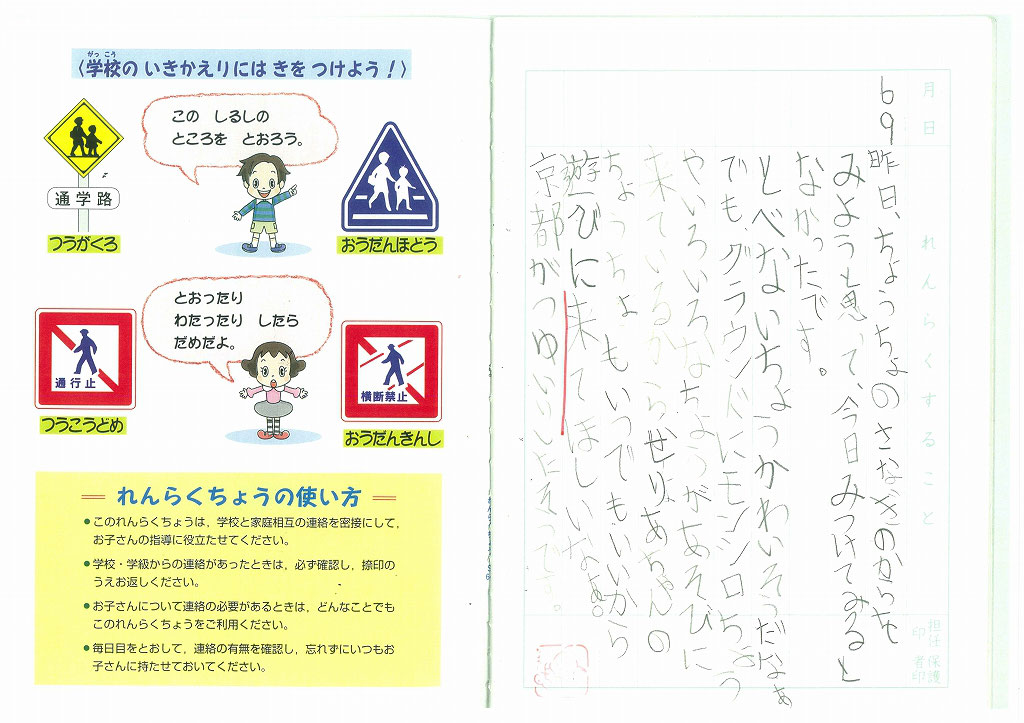 〈学校の いきかえりには きを つけよう！〉
がっこう
この しるしの
ところを とおろう。
通学路
つうがくろ
おうだんほどう
とおったり
わたったり したら
だめだよ。
通行止
つうこうどめ
横断禁止
おうだんきんし
れんらくちょうの使い方
●このれんらくちょうは，学校と家庭相互の連絡を密接にして，
お子さんの指導に役立たせてください。
●学校・学級からの連絡があったときは，必ず確認し，捺印の
うえお返しください。
●お子さんについて連絡の必要があるときは，どんなことでも
このれんらくちょうをご利用ください。
●毎日目をとおして，連絡の有無を確認し，忘れずにいつもお
子さんに持たせておいてください。
月日
れんらくすること
担任印
保護者印
6 9
昨日、ちょうちょのさなぎのからを
みようと思って、今日みつけてみると
なかったです。
とべないちょうかわいそうだなぁ
でも、グラウンドにモンシロちょう
やいろいろなちょうがあそびに
来ているから、ぜりあちゃんの
ちょうちょもいつでもいいから
遊びに来てほしいなぁ。
京都がつゆいりしたそうです。